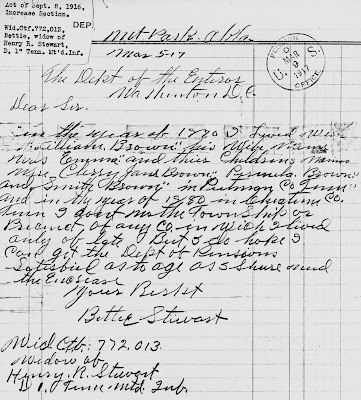 Act of Sept. 8, 1916,
Increase Section.
DEP.
Wid.Ctf.772,013,
Bettie, widow of
Henry R. Stewart,
D, 1" Tenn. Mt'd.Inf.
Mut Park, Okla
Mar 5-17
PENSION OFFICE
U. S.
MAR
9
1917
The Dept of the Enteror
Washinton D.C.
Dear Sir.
in the year of 1870 I Lived with
William Brown" his Wife Name
Mrs Emma" and their Childrins Names
Mrs Cherry Jane Brown"
Brown"
and Smith Brown" in Putnam Co Tenn"
and in the year of 1880 in Cheatum Co.
Tenn I dont no the Town Ship or
Precinct of any Co. in Wich I lived
only of late" But I do hope I
Can get the Dept of Pensions
Satisfied as to age as I Shure need
the Encrease
Your Resket
Bettie Stewart
Wid Ctf. 772,013.
Widow of
Henry. R. Stewart
D 1. Tenn. Mtd. Inf.